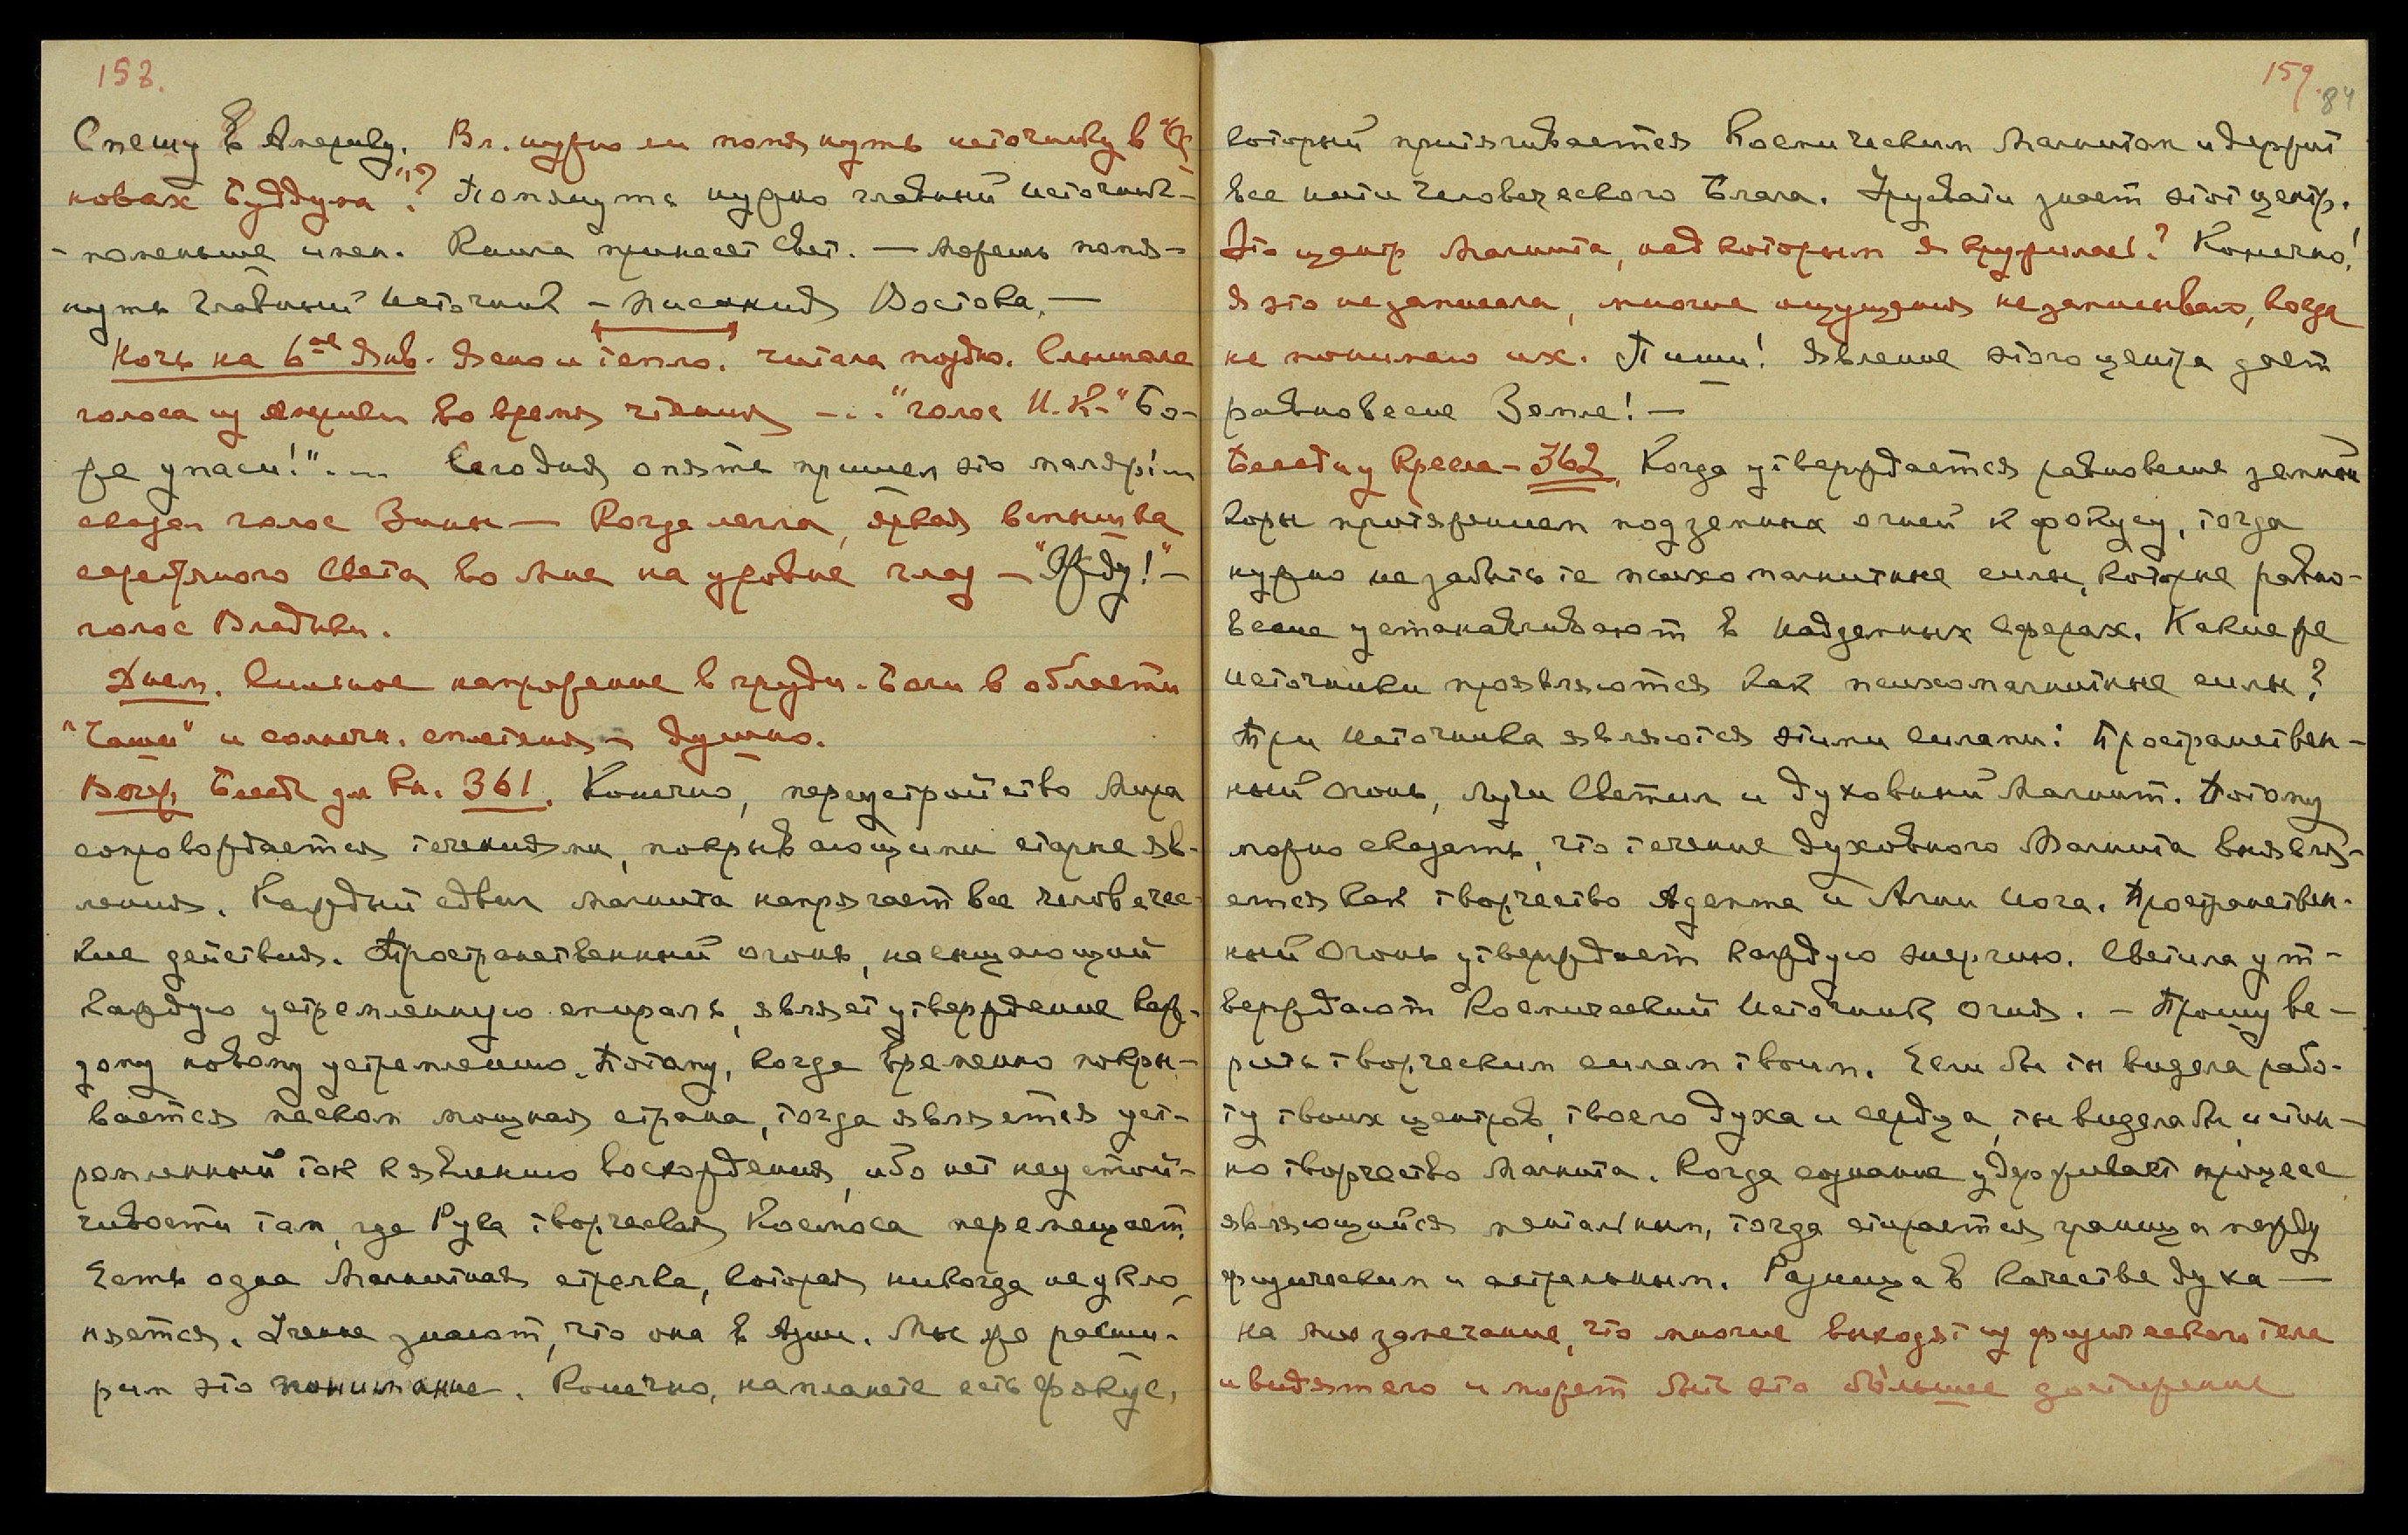 158.
Спешу в Америку. Вл. нужно ли помянуть источнику в "Ос
новах Буддизма"? Помянуть нужно главный источник-
- поменьше имен. Книга принесет Свет. — Можешь помя-
нуть Главный Источник - Писания Востока. —
Ночь на 6ое Янв. Ясно и тепло. Читала поздно. Слышала
голоса из Америки во время чтения — ... "голос И.К. "Бо-
же упаси!"... Сегодня опять пришел это маляр!...
сказал голос Зины — Когда легла, яркая вспышка
серебряного Света во мне на уровне глаз — "Жду!" —
голос Владыки.
Днем. Сильное напряжение в груди. Боли в области
"Чаши" и солнечн. сплетения - душно.
Вечер. Бесед. для Кн. 361. Конечно, переустройство Мира
сопровождается течениями, покрывающими старые яв-
ления. Каждый сдвиг Магнита напрягает все человечес-
кие действия. Пространственный огонь, насыщающий
каждую устремленную спираль, являет утверждение каж-
дому новому устремлению. Потому, когда временно покры-
вается песком мощная страна, тогда является уст-
ремленный ток к явлению восхождения, ибо нет неустой-
чивости там, где Рука творческая Космоса перемещает.
Есть одна Магнитная стрелка, которая никогда не укло
няется. Ученые знают, что она в Азии. Мы же расши-
рим это понимание. Конечно, на планете есть фокус,
159. 84
который притягивается Космическим Магнитом и держит
все нити Человеческого Блага. Урусвати знает этот центр.
Это центр Магнита, над которым я кружилась? Конечно!
Я это не записала, многие ощущения не записываю, когда
не понимаю их. Пиши! Явление этого центра дает
равновесие Земле! —
Беседы у Кресла - 362. Когда утверждается равновесие земной
коры притяжением подземных огней к фокусу, тогда
нужно не забыть те психомагнитные силы, которые равно-
весие устанавливают в Надземных Сферах. Какие же
источники проявляются как психомагнитные силы?
Три Источника являются этими Силами: Пространствен-
ный Огонь, Лучи Светил и Духовный Магнит. Потому
можно сказать, что течение Духовного Магнита выявля-
ется как творчество Адепта и Агни Йога. Пространствен-
ный Огонь утверждает каждую энергию. Светила ут-
верждают Космический Источник Огня. - Прошу ве-
рить творческим силам твоим. Если бы ты видела рабо-
ту твоих центров, твоего духа и сердца, ты видела бы истин-
но творчество Магнита. Когда сознание удерживает процесс
являющийся ментальным, тогда стирается граница между
физическим и астральным. Разница в качестве духа —
на мое замечание, что многие выходят из физического тела
и видят его и может быть это большее достижение